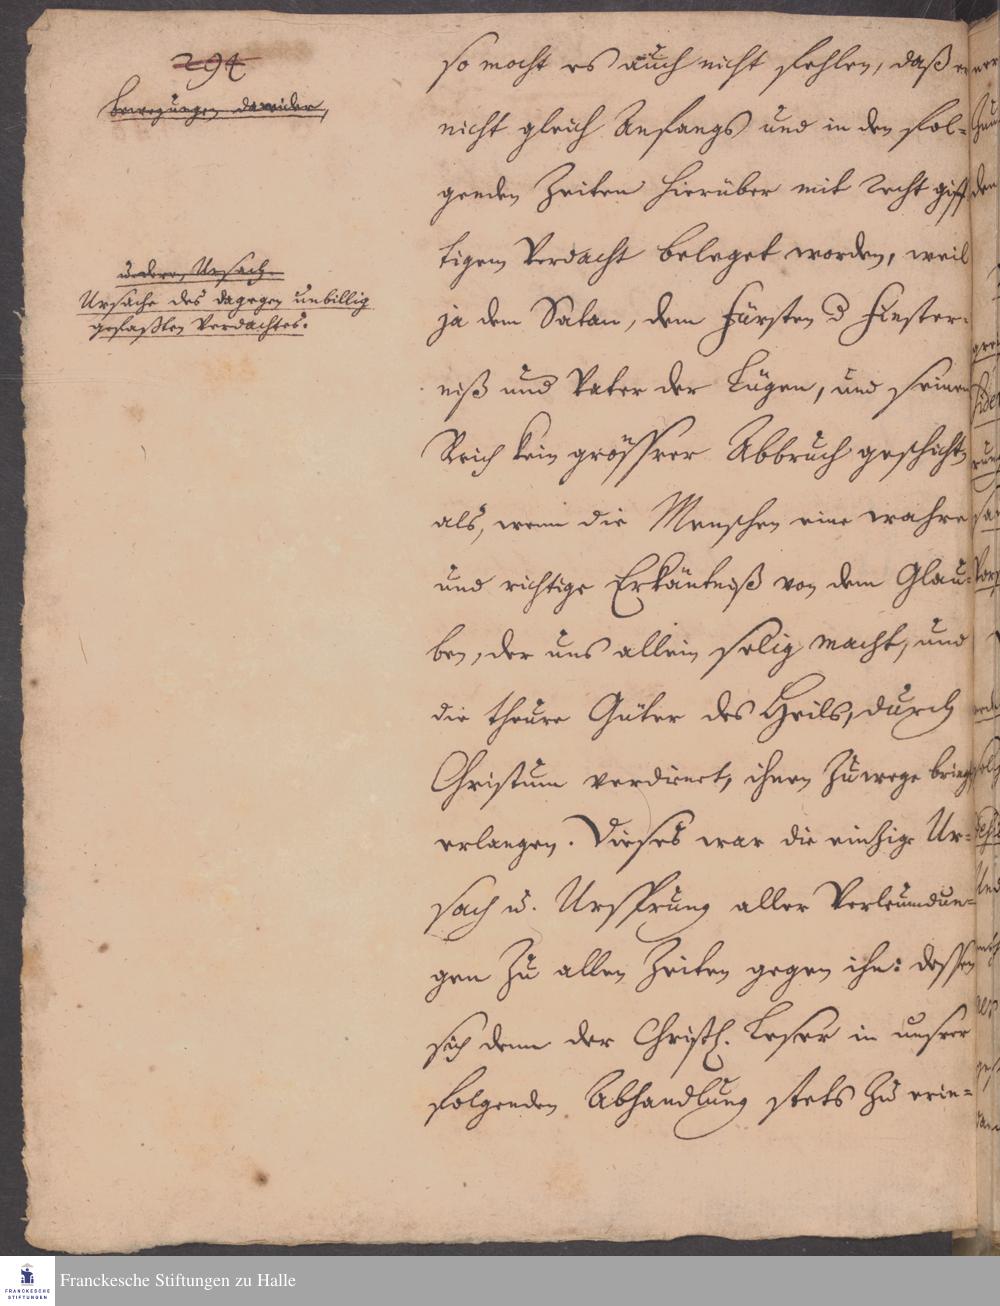 294
Bewegungen darwider,
u. deren Ursach.
Ursache des dagegen unbillig
gefaßten Verdachtes.
so mocht es auch nicht fehlen, daß er
nicht gleich Anfangs und in den fol-
genden Zeiten hierüber mit recht gif-
tigem Verdacht beleget worden, weil
ja dem Satan, dem Fürsten d Finster-
niß und Vater der Lügen, und seinem
Reich kein grösserer Abbruch geschicht,
als, wenn die Menschen eine wahre
und richtige Erkäntniß von dem Glau-
ben, der uns allein selig macht, und
die theure Güter des Heils, durch
Christum verdienet, ihnen zuwege bringt,
erlangen. Dieses war die eintzige Ur-
sach u. Ursprung aller Verleumdun-
gen zu allen Zeiten gegen ihn: dessen
sich denn der Christl. Leser in unsrer
folgenden Abhandlung stets zu erin-
FRANCKESCHE
STIFTUNGEN
Franckesche Stiftungen zu Halle